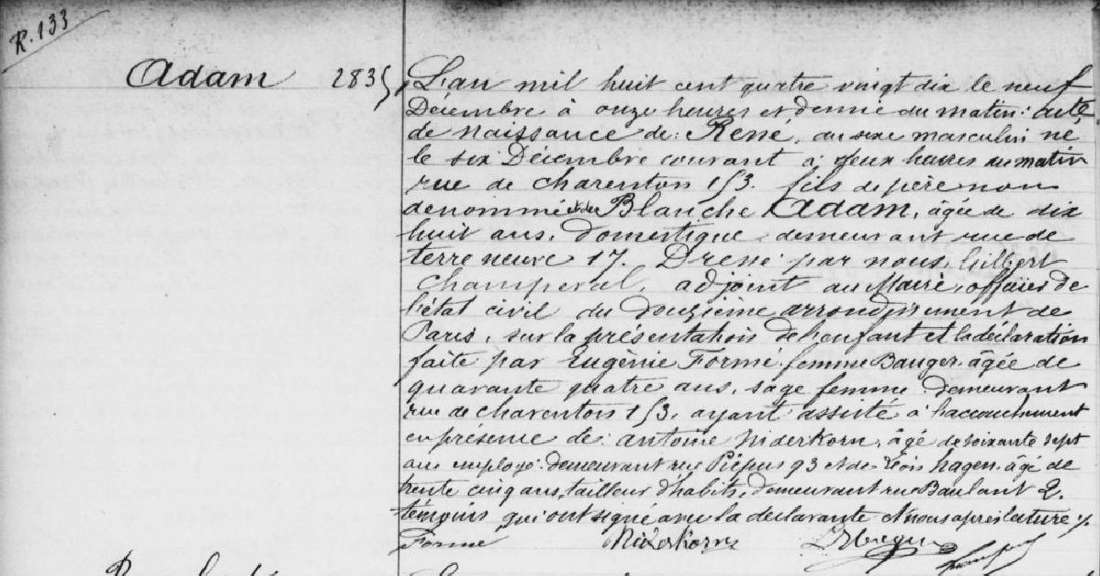 R. 133
Adam 2835
L'an mil huit cent quatre vingt dix le neuf
Décembre à onze heures et demie du matin: acte
de naissance de: René, du sexe masculin né
le six Décembre courant à deux heures du matin
rue de charenton 153. fils de père non
dénommé et de Blanche Adam, âgée de dix
huit ans, Domestique, demeurant rue de
terre neuve 17. Dressé par nous, Gilbert
Champeval, adjoint au Maire, officier de
l'état civil du douzième arrondissement de
Paris, sur la présentation de l'enfant et la déclaration
faite par Eugénie Formé femme Bauger âgée de
quarante quatre ans, sage femme demeurant
rue de charenton 153, ayant assisté à l'accouchement
en présence de: antoine Niderkorn, âgé de soixante sept
ans employé: demeurant rue Picpus 93 et de hagen âgé de
trente cinq ans, tailleur d'habits, demeurant rue Baulant 2.
témoins qui ont signé avec la déclarante et nous après lecture
Formé Niderkorn